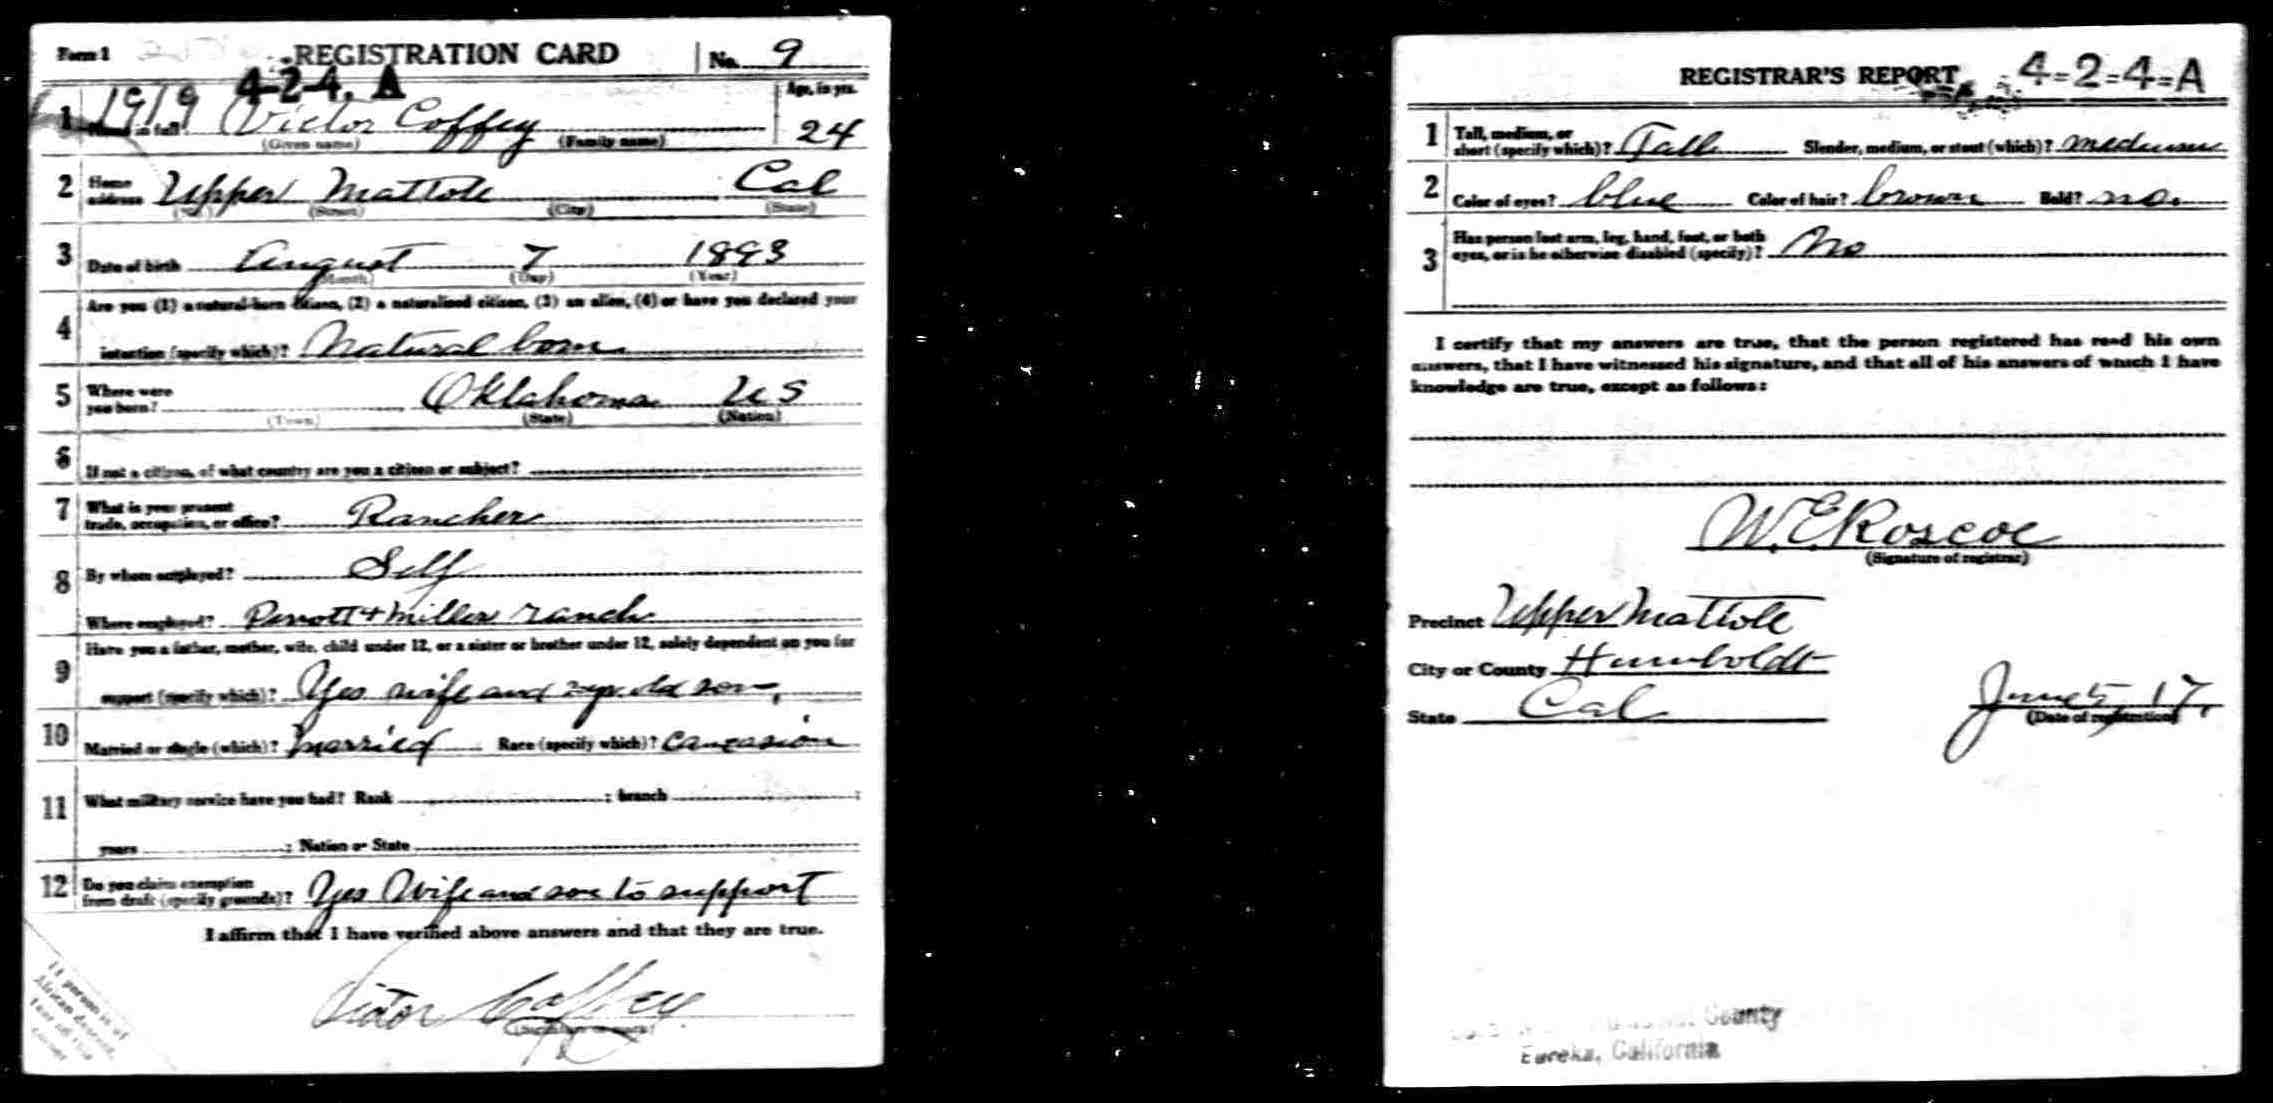 Form 1 REGISTRATION CARD No. 9
4-2-4. A Age, in yrs.
1 1919 Victor Coffey 24
(Given name) (Family name)
2 Home address Upper Mattole Cal
(No.) (Street) (City) (State)
3 Date of birth August 7 1893
(Month) (Day) (Year)
4 Are you (1) a natural-born citizen, (2) a naturalized citizen, (3) an alien, (4) or have you declared your
intention (specify which)? Natural born
5 Where were you born? Oklahoma US
(Town) (State) (Nation)
6 If not a citizen, of what country are you a citizen or subject?
7 What is your present
trade, occupation, or office? Rancher
8 By whom employed? Self
Where employed? Perrott + Miller ranch
9 Have you a father, mother, wife, child under 12, or a sister or brother under 12, solely dependent on you for
support (specify which)? Yes wife and 2 yr. old son,
10 Married or single (which)? married Race (specify which)? Caucasion
11 What military service have you had? Rank ; branch ;
years ; Nation or State
12 Do you claim exemption
from draft (specify grounds)? Yes Wife and son to support
I affirm that I have verified above answers and that they are true.
Victor Coffey
If person is of
African descent,
REGISTRAR'S REPORT 4=2=4=A
1 Tall, medium, or
short (specify which)? Tall Slender, medium, or stout (which)? medium
2 Color of eyes? blue Color of hair? brown Bald? no.
3 Has person lost arm, leg, hand, foot, or both
eyes, or is he otherwise disabled (specify)? No
I certify that my answers are true, that the person registered has read his own
answers, that I have witnessed his signature, and that all of his answers of which I have
knowledge are true, except as follows:
W. E. Roscoe
(Signature of registrar)
Precinct Upper Mattole
City or County Humboldt
State Cal June 5, 17.
(Date of registration)
County
Eureka, California